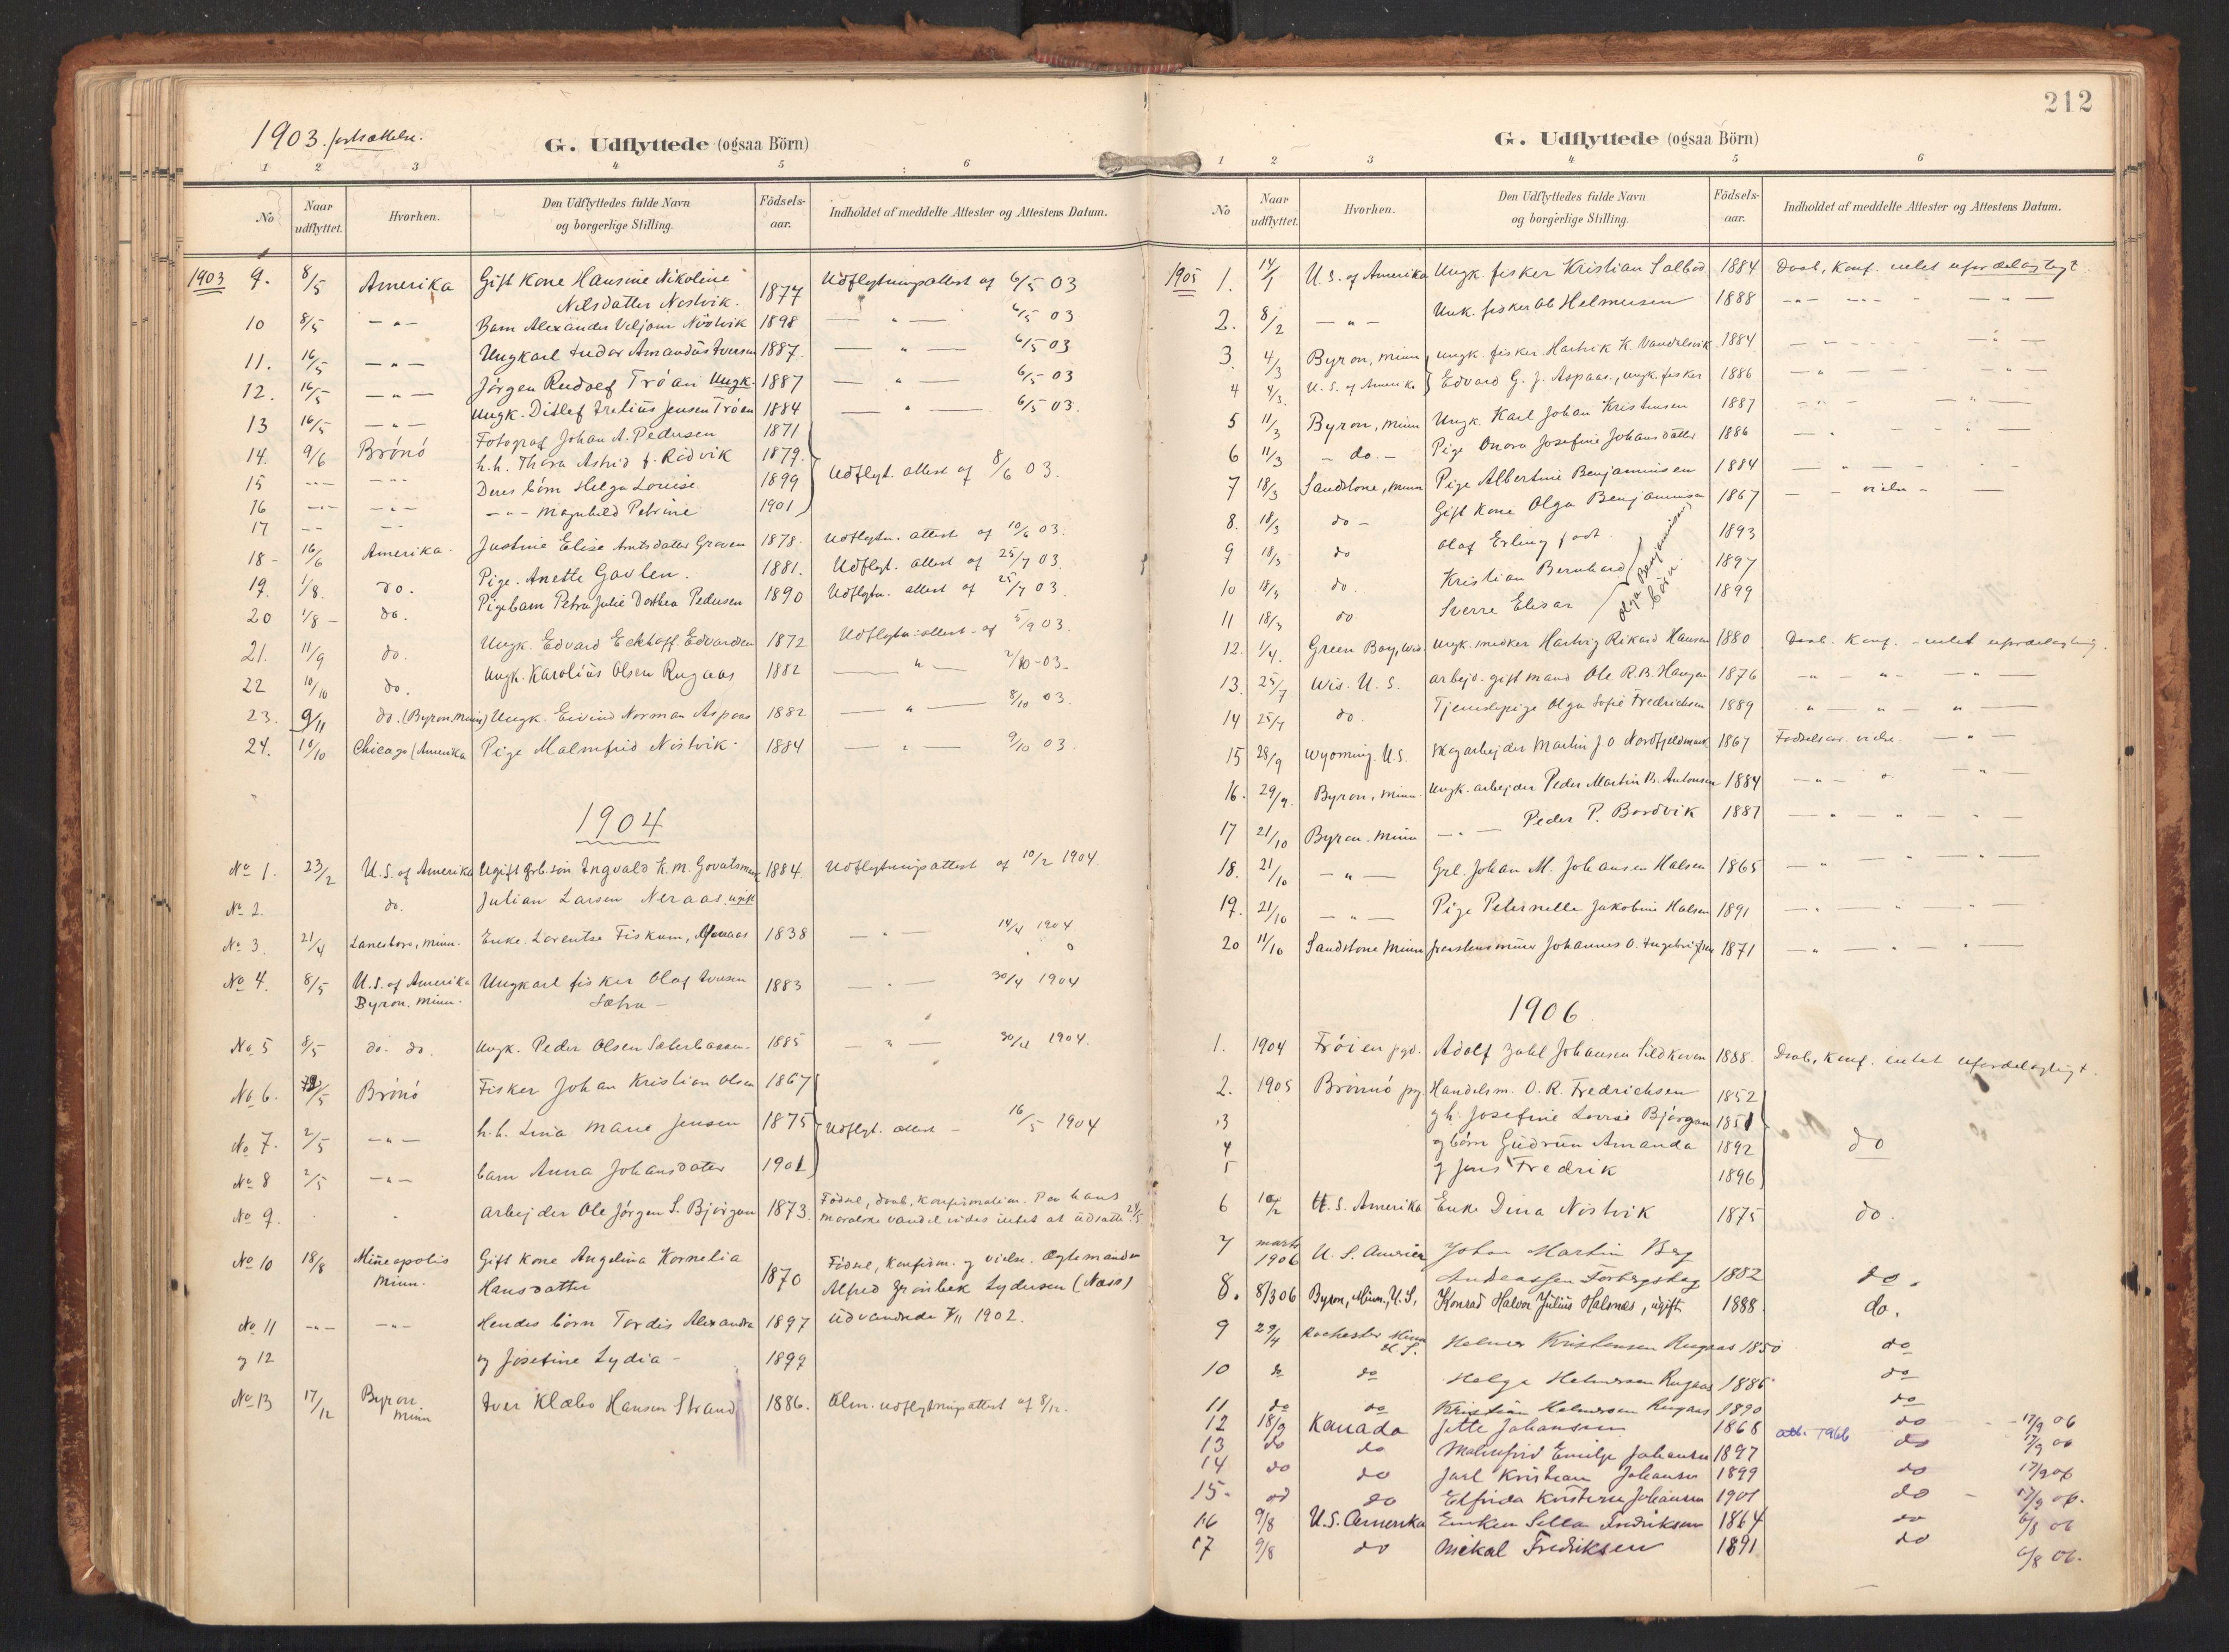 1903. fortsættelse.
G. Udflyttede (ogsaa Börn)
1 2 3 4 5 6
No Naar udflyttet. Hvorhen. Den Udflyttedes fulde Navn og borgerlige Stilling. Födsels-aar. Indholdet af meddelte Attester og Attestens Datum.
1903 9. 8/5 Amerika Gift Kone Hansine Nikoline
Nilsdatter Nostvik. 1877 Udflytningsattest af 6/5 03
10 8/5 — " — Barn Alexander Viljam Nöstvik 1898 — " — 6/5 03
11. 16/5 — " — Ungkarl Amandus Iversen 1887. — " — 6/5 03
12. 16/5 — " — Jörgen Rudolf Tróan Ungk. 1887 — " — 6/5 03
13 16/5 — " — Ungk. Ditlef Jensen Tróan 1884 — " — 6/5 03.
14. 9/6 Brönö Fotograf Johan A. Pedersen 1871
15 - " - - " - h.h. Thora Astrid f. Ridvik 1879. Udflyt. attest af 8/6 03.
16 - " - - " - Deres börn Helga Lovise 1899
17 - " - - " - - " - Magnhild Petrine 1901
18 - 16/6 Amerika. Justine Elise Amtsdatter Graven 1878. Udflytn. attest af 10/6 03.
19. 1/8. do. Pige. Anette Gavlen. 1881. Udflyt. attest af 25/7 03.
20 1/8 - do. Pigebarn Petra Julie Dorthea Pedersen 1890 Udflytn. attest af 25/7 03.
21. 11/9 do. Ungk. Edvard Eckhoff Edvardsen 1872 Udflytn. attest - af 5/9 03.
22 10/10 do. Ungk. Karolius Olsen Rugaas 1882 — " — 2/10 - 03 -
23. 9/11 do. (Byron, Minn) Ungk. Eivind Norman Aspaas 1882 — " — 8/10 03.
24. 10/10 Chicago (Amerika Pige Malmfrid Nöstvik. 1884 — " — 9/10 03.
1904
No 1. 23/2 U.S. of Amerika Ugift Ingvald K. M. 1884. Udflytningsattest af 10/2 1904.
No 2. do. Julian Larsen Neraas, ugift
No 3 21/4 Lanesboro, Minn. Enke. Lorentse Fiskum, 1838 — " — 14/4 1904
No 4. 8/5 U.S. of Amerika Ungkarl fisker Olaf Iversen 1883 — " — 30/4 1904
Byron. Minn.
No 5 8/5 do. do. Ungk. Peder Olsen 1885 — " — 30/4 1904.
No 6. /5 Brönö Fisker Johan Kristian Olsen 1867
No 7. 2/5 - " - h.h. Lina Marie Jensen 1875 Udflyt. attest - 16/5 1904
No 8 2/5 - " - barn Anna Johansdatter 1901
No 9. arbejder Ole Jörgen S. Bjórgan 1873. Födsel, daab, konfirmation. Paa hans
moralske vandel vides intet at udsætte 24/5
No 10 18/8 Mineapolis Gift Kone Angelina Kornelia Födsel, Konfirm. og vielse. Ægtemanden
Minn. Hansdatter 1870 Alfred Grönbek Lydersen (Næss)
No 11 - " - - " - Hendes börn Tordis Alexandra 1897 udvandrede /11 1902.
og 12 og Josefine Lydia - 1899
No 13 17/12 Byron Iver Klæbo Hansen Strand 1886. Alm. udflytningsattest af 8/12.
Minn
212
G. Udflyttede (ogsaa Börn)
1 2 3 4 5 6
No Naar udflyttet. Hvorhen. Den Udflyttedes fulde Navn og borgerlige Stilling. Födsels-aar. Indholdet af meddelte Attester og Attestens Datum.
1905 1. 14/1 U.S. of Amerika Ungk. fisker Kristian 1884 Daab, Konf. intet ufordelagtigt.
2. 8/2 — " — Unk. fisker Ole Helmersen 1888
3. 4/3 Byron, Minn ungk. fisker Hartvik K. Vandalsvik 1884
4 4/3. U.S. of Amerika Edvard G. J. Aspaas., ungk. fisker 1886
5 11/3 Byron, Minn Ungk. Karl Johan Kristensen 1887
6 11/3 - do. - Pige Onora Josefine Johansdatter 1886
7 18/3 Sandstone, Minn Pige Albertine Benjaminsen 1884
8. 18/3 do - Gift Kone Olga Benjaminsen 1867 - - vielse -
9 18/3 do Olaf Erling födt 1893
10 18/3 do. Kristian Bernhard 1897
11 18/3 do Sverre Elisar 1899
Olga Benjaminsens
börn.
12. 1/4. Green Bay, Wis. Ungk. snedker Hartvig Rikard Hansen 1880 Daab. Konf. - intet ufordelagtig.
13. 25/7 Wis. U.S. arbejd. gift mand Ole R.B. Haugen 1876
14 25/7 do. Tjenestepige Olga Sofie Fredriksen 1889
15 28/9 Wyoming. U.S. Martin J O Nordfjeldmark 1867 Födselsaar. vielse.
16. 29/9. Byron, Minn. Ungk. arbejder Peder Martin B. Antonsen 1884
17 21/10 Byron. Minn — " — Peder P. Bordvik 1887
18. 21/10 — " — Johan M. Johansen Halsen 1865
19. 21/10 — " — Pige Peternelle Jakobine Halsen 1891
20 11/10 Sandstone Minn Johannes O. Ingebrigtsen 1871
1906
1. 1904 Fröien pgd. Adolf Zahl Johansen Sildkoven 1888. Daab, Konf. intet ufordelagtigt.
2. 1905 Brönnö pg. Handelsm. O. R. Fredrichsen 1852
3 g h. Josefine Lovise Bjórgan 1851
4 og börn Gudrun Amanda 1892 do
5 og Jens Fredrik 1896
6 10/2 U.S. Amerika Enke Dina Nöstvik 1875 do.
7 marts 1906 U. S. America Johan Martin Berg
Andreassen Forbergskog 1882 do.
8. 8/3 06 Byron, Minn., U.S, Konrad Halvor Julius Halsnes, ugift 1888. do.
9 29/4 Rochester Minn U.S. Helmer Kristensen Rugaas 1850 do
10 do do Helge Helmersen Rugaas 1886 do
11 do do Kristian Helmersen Rugaas 1890 do
12 18/9 Kanada Jette Johansen 1868 att. 1966 do - 17/9 06
13 do do Malmfrid Emilje Johansen 1897 do 17/9 06
14 do do Jarl Kristian Johansen 1899 do 17/9 06
15 - do do Elfrida Johansen 1901 do - 17/9 06.
16 9/8 U.S. Amerika Enken Sella Fredriksen 1864 do 6/8 06
17 9/8 do Mikal Fredriksen 1891 do 6/8 06.